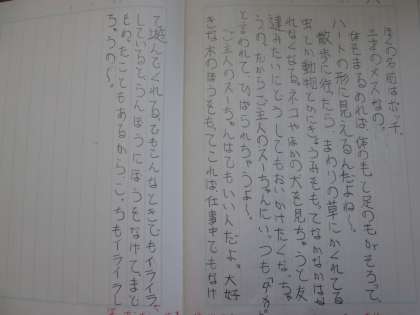 ぼくの名前は
才のメスなの。
体をまるめれば、体のもと足のもがそろって、
ハートの形に見えるんだよね〜。
散歩に行たら、まわりの草にかくれてる
虫とか動物とかにきょうみをもってなかなかはな
れなくなる。ネコやほかの犬を見ちゃうと友
達みたいにどうしてもおいかけたくなっちゃ
うの。だからご主人のスーちゃんにいつも
と言われて、ひっぱられちゃうよ〜。
ご主人のスーちゃんはとてもいい人だよ。大好
きな木のぼうをもってこれば、仕事中でもなげ
て遊んでくれてる。でもこんなときでもイライラ
していると、ほうにぼうをなげて
たこともあるから、こっちもイライラし
ちゃうの〜。